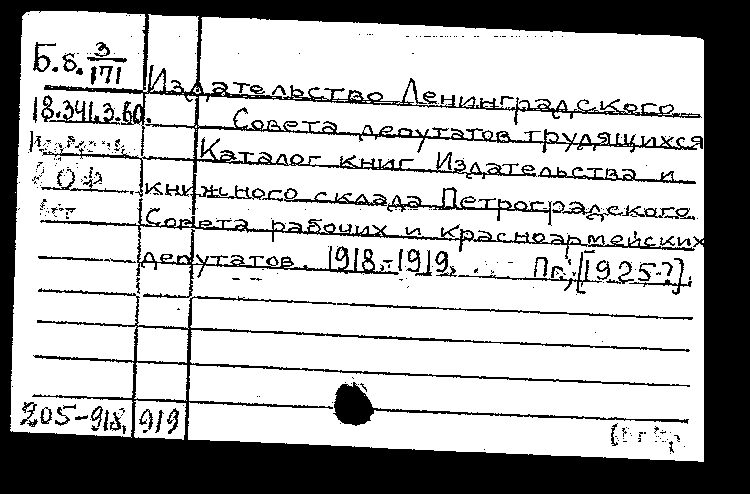 Б.8. 3/171
Издательство Ленинградского
18.341.3.60.
Совета депутатов трудящихся
Каталог книг Издательства и
ОФ
книжного склада Петроградского
Совета рабочих и красноармейских
депутатов. 1918-1919. Пг., [1925?].
205-918, 919